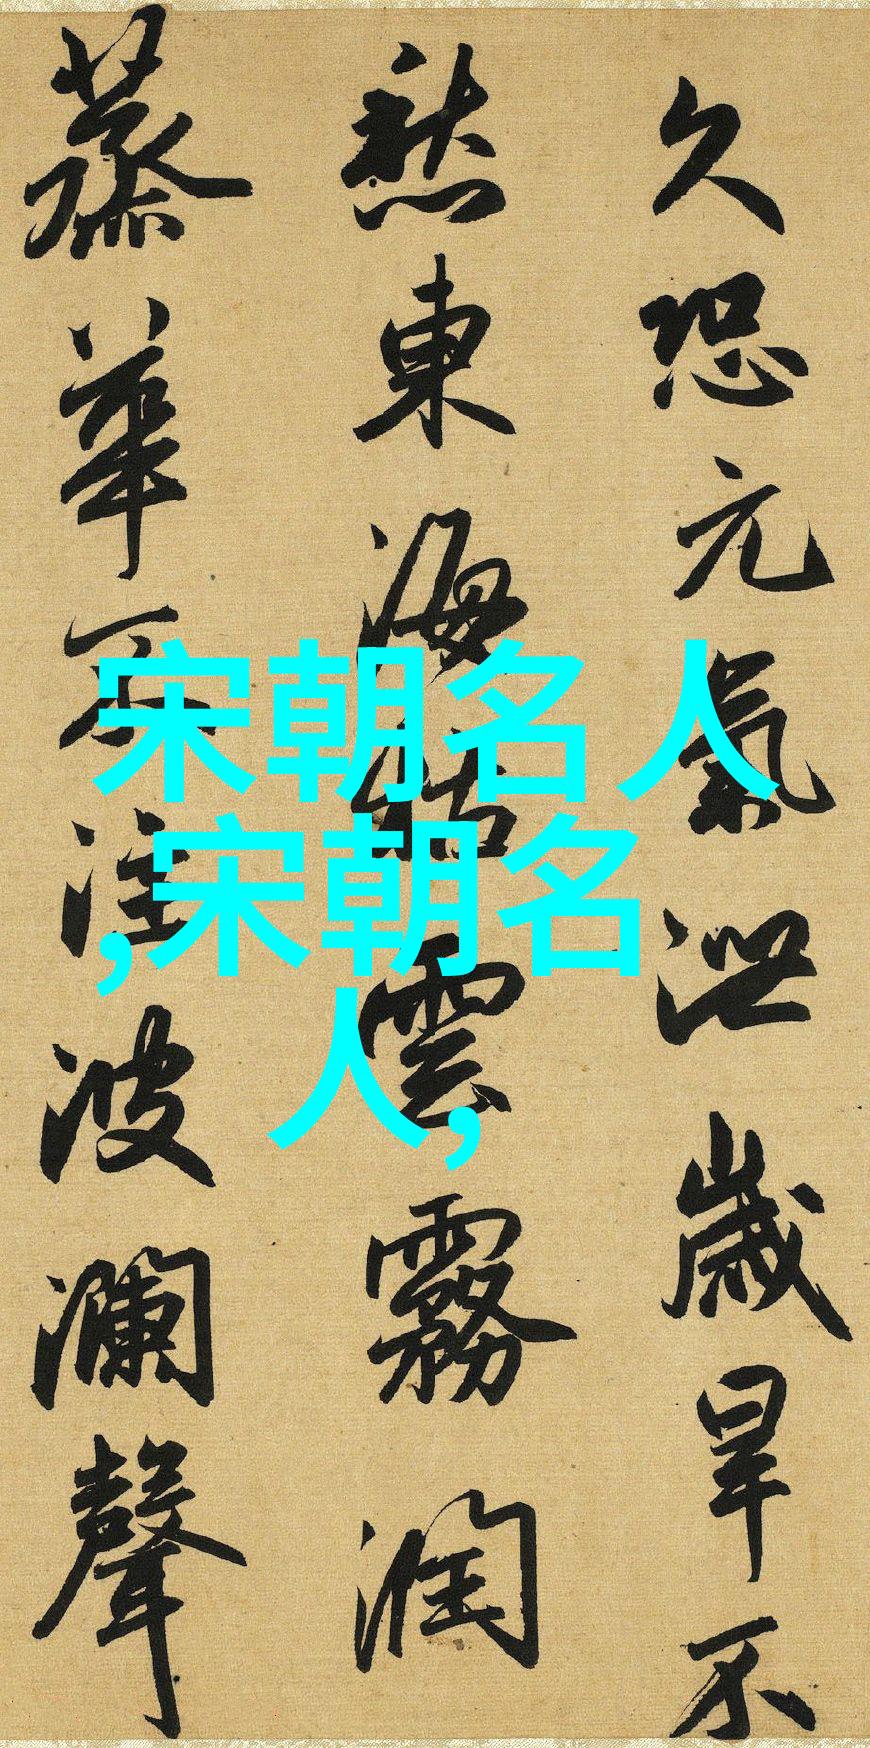 久恐元氣泄歲旱不
愁東海枯雲霧潤
蒸華不注波瀾聲
宋朝名人
,宋朝名
人,